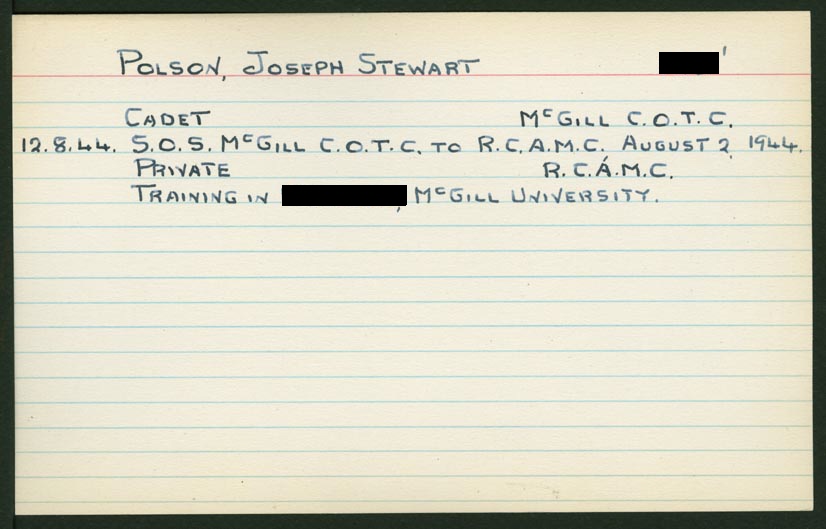 POLSON, JOSEPH STEWART '
CADET McGILL C.O.T.C.
12.8.44. S.O.S. McGILL C.O.T.C. TO R.C.A.M.C. AUGUST 2, 1944.
PRIVATE R.C.A.M.C.
TRAINING IN , McGILL UNIVERSITY.